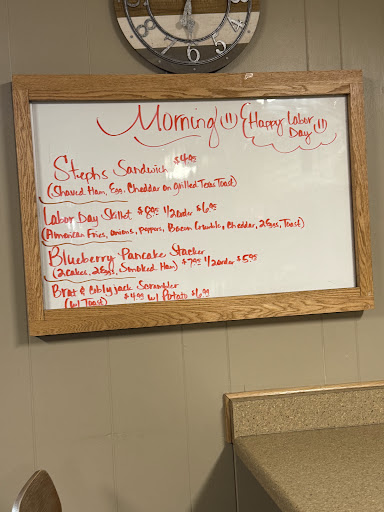 Morning! (Happy Labor Day
Stephs Sandwich $4.95
(Shaved Ham, Egg, Cheddar on grilled Texas Toast)
Labor Day Skillet $8.95 1/2 order $6.95
(American Fries, onions, peppers, Bacon Crumble, Cheddar, 2 Eggs, Toast)
Blueberry Pancake Stacker
(2 cakes, 2 Eggs, Smoked Ham) $7.95 1/2 order $5.95
Brat & Colby jack Scrambler
(w/ Toast) $4.95 w/ Potato $6.95
7 6 5 4